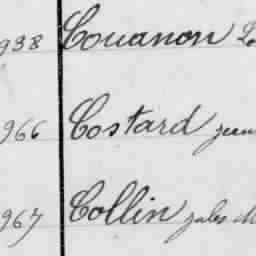 938 Couanon
966 Costard
967 Collin Jules